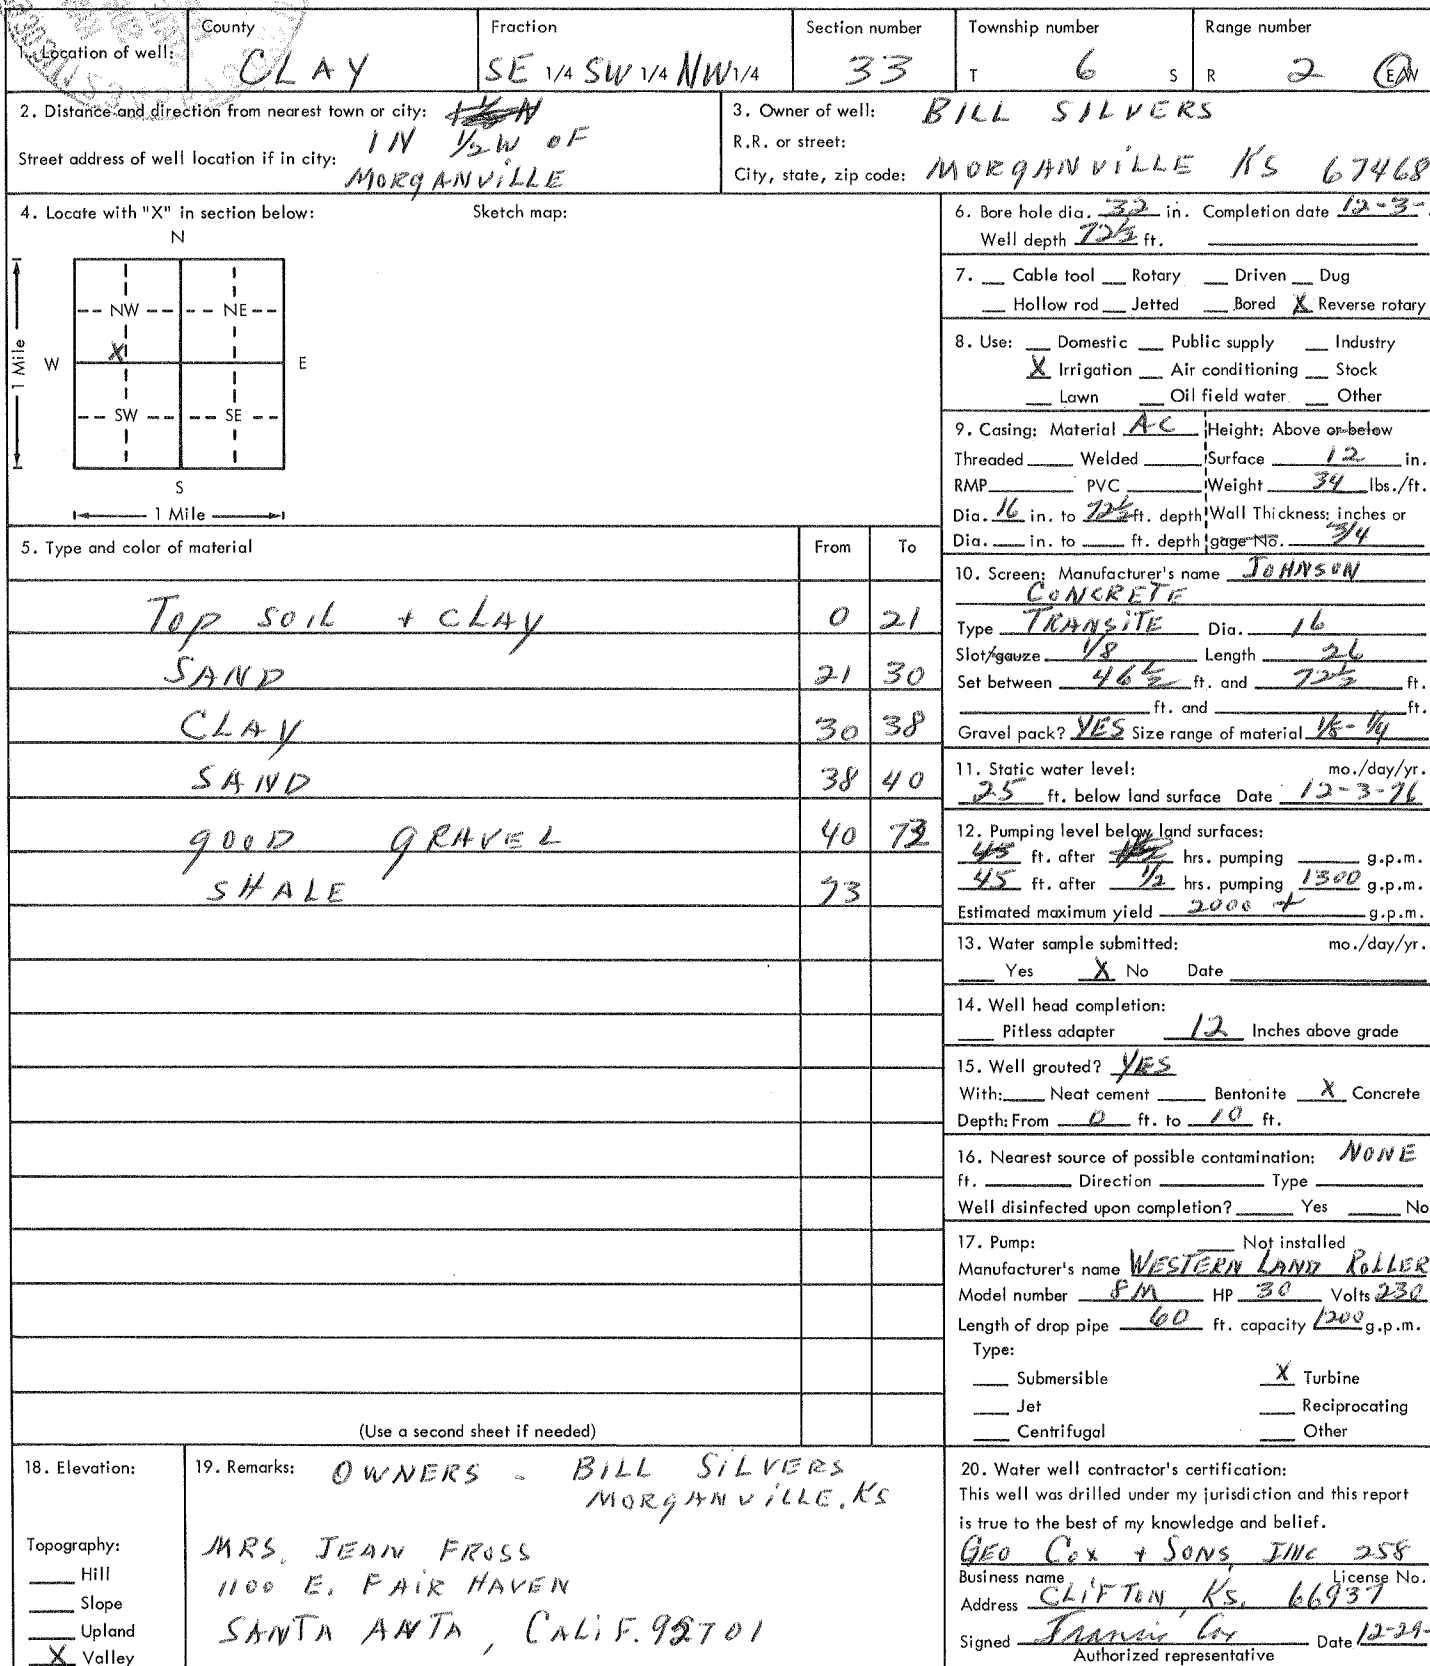 County Fraction Section number Township number Range number
1. Location of well: CLAY SE 1/4 SW 1/4 NW 1/4 33 T 6 S R 2 E/W
2. Distance and direction from nearest town or city:
1 N 1/2 W OF
Street address of well location if in city:
MORGANVILLE
3. Owner of well: BILL SILVERS
R.R. or street:
City, state, zip code: MORGANVILLE KS 67468
4. Locate with "X" in section below: Sketch map:
N
NW NE
X
W E
1 Mile
SW SE
S
1 Mile
5. Type and color of material From To
TOP SOIL + CLAY 0 21
SAND 21 30
CLAY 30 38
SAND 38 40
GOOD GRAVEL 40 73
SHALE 73
(Use a second sheet if needed)
6. Bore hole dia. 32 in. Completion date 12-3-
Well depth 72 1/2 ft.
7. Cable tool Rotary Driven Dug
Hollow rod Jetted Bored X Reverse rotary
8. Use: Domestic Public supply Industry
X Irrigation Air conditioning Stock
Lawn Oil field water Other
9. Casing: Material A-C Height: Above or below
Threaded Welded Surface 12 in.
RMP PVC Weight 34 lbs./ft.
Dia. 16 in. to 72 1/2 ft. depth Wall Thickness: inches or
Dia. in. to ft. depth gage No. 3/4
10. Screen: Manufacturer's name JOHNSON
CONCRETE
Type TRANSITE Dia. 16
Slot/gauze 1/8 Length 26
Set between 46 1/2 ft. and 72 1/2 ft.
ft. and ft.
Gravel pack? YES Size range of material 1/8 - 1/4
11. Static water level: mo./day/yr.
25 ft. below land surface Date 12-3-76
12. Pumping level below land surfaces:
45 ft. after hrs. pumping g.p.m.
45 ft. after 1/2 hrs. pumping 1300 g.p.m.
Estimated maximum yield 2000 + g.p.m.
13. Water sample submitted: mo./day/yr.
Yes X No Date
14. Well head completion:
Pitless adapter 12 Inches above grade
15. Well grouted? YES
With: Neat cement Bentonite X Concrete
Depth: From 0 ft. to 10 ft.
16. Nearest source of possible contamination: NONE
ft. Direction Type
Well disinfected upon completion? Yes No
17. Pump: Not installed
Manufacturer's name WESTERN LAND ROLLER
Model number 8M HP 30 Volts 230
Length of drop pipe 60 ft. capacity 1200 g.p.m.
Type:
Submersible X Turbine
Jet Reciprocating
Centrifugal Other
18. Elevation:
Topography:
Hill
Slope
Upland
X Valley
19. Remarks: OWNERS - BILL SILVERS
MORGANVILLE, KS
MRS. JEAN FROSS
1100 E. FAIR HAVEN
SANTA ANTA, CALIF. 92701
20. Water well contractor's certification:
This well was drilled under my jurisdiction and this report
is true to the best of my knowledge and belief.
GEO COX + SONS, INC 258
Business name License No.
Address CLIFTON, KS. 66937
Signed Francis Cox Date 12-29-
Authorized representative